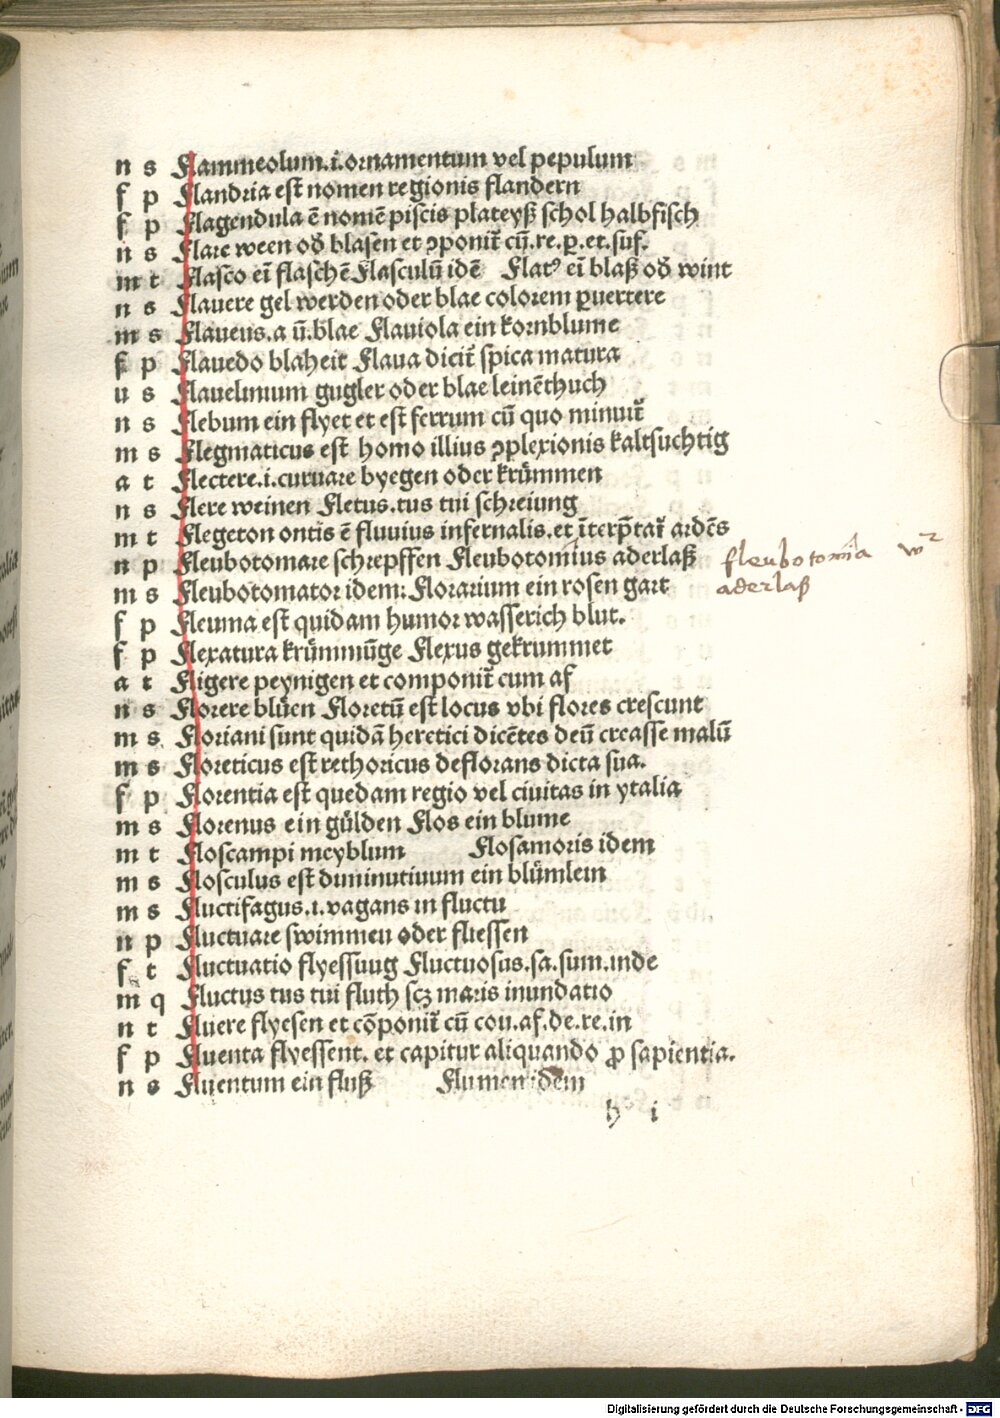 n s Flammeolum.i.ornamentum vel pepulum
f p Flandria est nomen regionis flandern
f p Flagendula ē nomē piscis plateyß schol halbfisch
n s Flare ween od̄ blasen et ꝯponit᷑ cū.re.ꝑ.et.suf.
m t Flasco eī flaschē Flasculū idē Flatꝰ eī blaß od̄ wint
n s Flauere gel werden oder blae colorem ꝑuertere
m s Flaueus.a ū.blae Flauiola ein kornblume
f p Flauedo blaheit Flaua dicit᷑ spica matura
u s Flauelinium gugler oder blae leinēthuch
n s Flebum ein flyet et est ferrum cū quo minuit᷑
m s Flegmaticus est homo illius ꝯplexionis kaltsuchtig
a t Flectere.i.curuare byegen oder krümmen
n s Flere weinen Fletus.tus tui schreiung
m t Flegeton ontis ē fluuius infernalis.et īterp̄tat᷑ ardēs
n p Fleubotomare schrepffen Fleubotomius aderlaß fleubotomia
m s Fleubotomator idem: Florarium ein rosen gart aderlaß
f p Fleuma est quidam humor wasserich blut.
f p Flexatura krümmūge Flexus gekrummet
a t Fligere peynigen et componit᷑ cum af
n s Florere blüen Floretū est locus vbi flores crescunt
m s Floriani sunt quidā heretici dicētes deū creasse malū
m s Floreticus est rethoricus deflorans dicta sua.
f p Florentia est quedam regio vel ciuitas in ytalia
m s Florenus ein gülden Flos ein blume
m t Floscampi meyblum Flosamoris idem
m s Flosculus est diminutiuum ein blümlein
m s Fluctifagus.i.vagans in fluctu
n p Fluctuare swimmeu oder fliessen
f t Fluctuatio flyessuug Fluctuosus.sa.sum.inde
m q Fluctus tus tui fluth scꝫ maris inundatio
n t Fluere flyesen et cōponit᷑ cū cou.af.de.re.in
f p Fluenta flyessent. et capitur aliquando ꝓ sapientia.
n s Fluentum ein fluß Flumen idem
h i
Digitalisierung gefördert durch die Deutsche Forschungsgemeinschaft - DFG